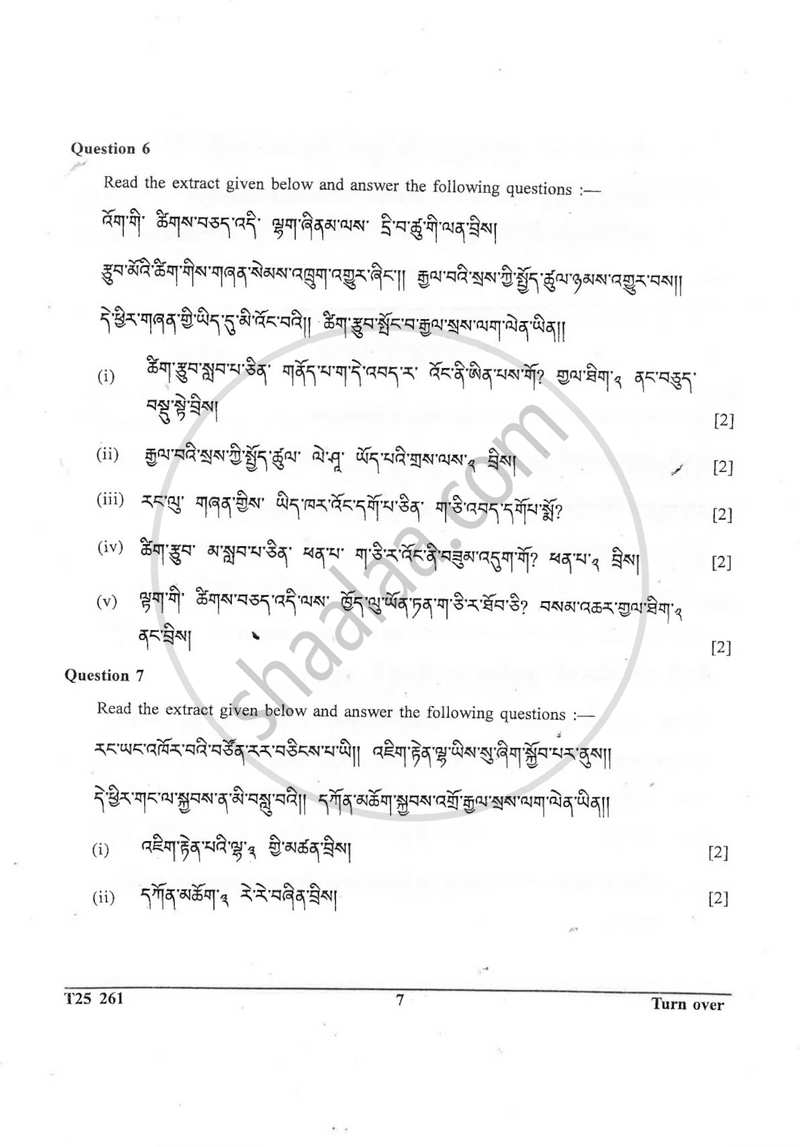 Question 6
Read the extract given below and answer the following questions :—
འོག་གི་ ཚིགས་བཅད་འདི་ ལྷག་ཞིནམ་ལས་ དྲི་བ་ཚུ་གི་ལན་བྲིས།
རྩུབ་མོའི་ཚིག་གིས་གཞན་སེམས་འཁྲུག་འགྱུར་ཞིང་།། རྒྱལ་བའི་སྲས་ཀྱི་སྤྱོད་ཚུལ་ཉམས་འགྱུར་བས།།
དེ་ཕྱིར་གཞན་གྱི་ཡིད་དུ་མི་འོང་བའི།། ཚིག་རྩུབ་སྤོང་བ་རྒྱལ་སྲས་ལག་ལེན་ཡིན།།
(i) ཚིག་རྩུབ་སླབ་པ་ཅིན་ གནོད་པ་ག་དེ་འབད་ར་ འོང་ནི་ཨིན་པས་གོ? གྱལ་ཐིག་༢ ནང་བཅུད་
བསྡུ་སྟེ་བྲིས།
[2]
(ii) རྒྱལ་བའི་སྲས་ཀྱི་སྤྱོད་ཚུལ་ ལེ་ཤ་ ཡོད་པའི་གྲས་ལས་༢ བྲིས། [2]
(iii) རང་ལུ་ གཞན་གྱིས་ ཡིད་ཁར་འོང་དགོ་པ་ཅིན་ ག་ཅི་འབད་དགོཔ་སྨོ? [2]
(iv) ཚིག་རྩུབ་ མ་སླབ་པ་ཅིན་ ཕན་པ་ ག་ཅི་ར་འོང་ནི་བཟུམ་འདུག་གོ? ཕན་པ་༢ བྲིས། [2]
(v) ལྟག་གི་ ཚིགས་བཅད་འདི་ལས་ ཁྱོད་ལུ་ཡོན་ཏན་ག་ཅི་ར་ཐོབ་ཅི? བསམ་འཆར་གྱལ་ཐིག་༢
ནང་བྲིས།
[2]
Question 7
Read the extract given below and answer the following questions :—
རང་ཡང་འཁོར་བའི་བཙོན་རར་བཅིངས་པ་ཡི།། འཇིག་རྟེན་ལྷ་ཡིས་སུ་ཞིག་སྐྱོབ་པར་ནུས།།
དེ་ཕྱིར་གང་ལ་སྐྱབས་ན་མི་བསླུ་བའི།། དཀོན་མཆོག་སྐྱབས་འགྲོ་རྒྱལ་སྲས་ལག་ལེན་ཡིན།།
(i) འཇིག་རྟེན་པའི་ལྷ་༢ གྱི་མཚན་བྲིས། [2]
(ii) དཀོན་མཆོག་༢ རེ་རེ་བཞིན་བྲིས། [2]
T25 261 7 Turn over
shaalaa.com